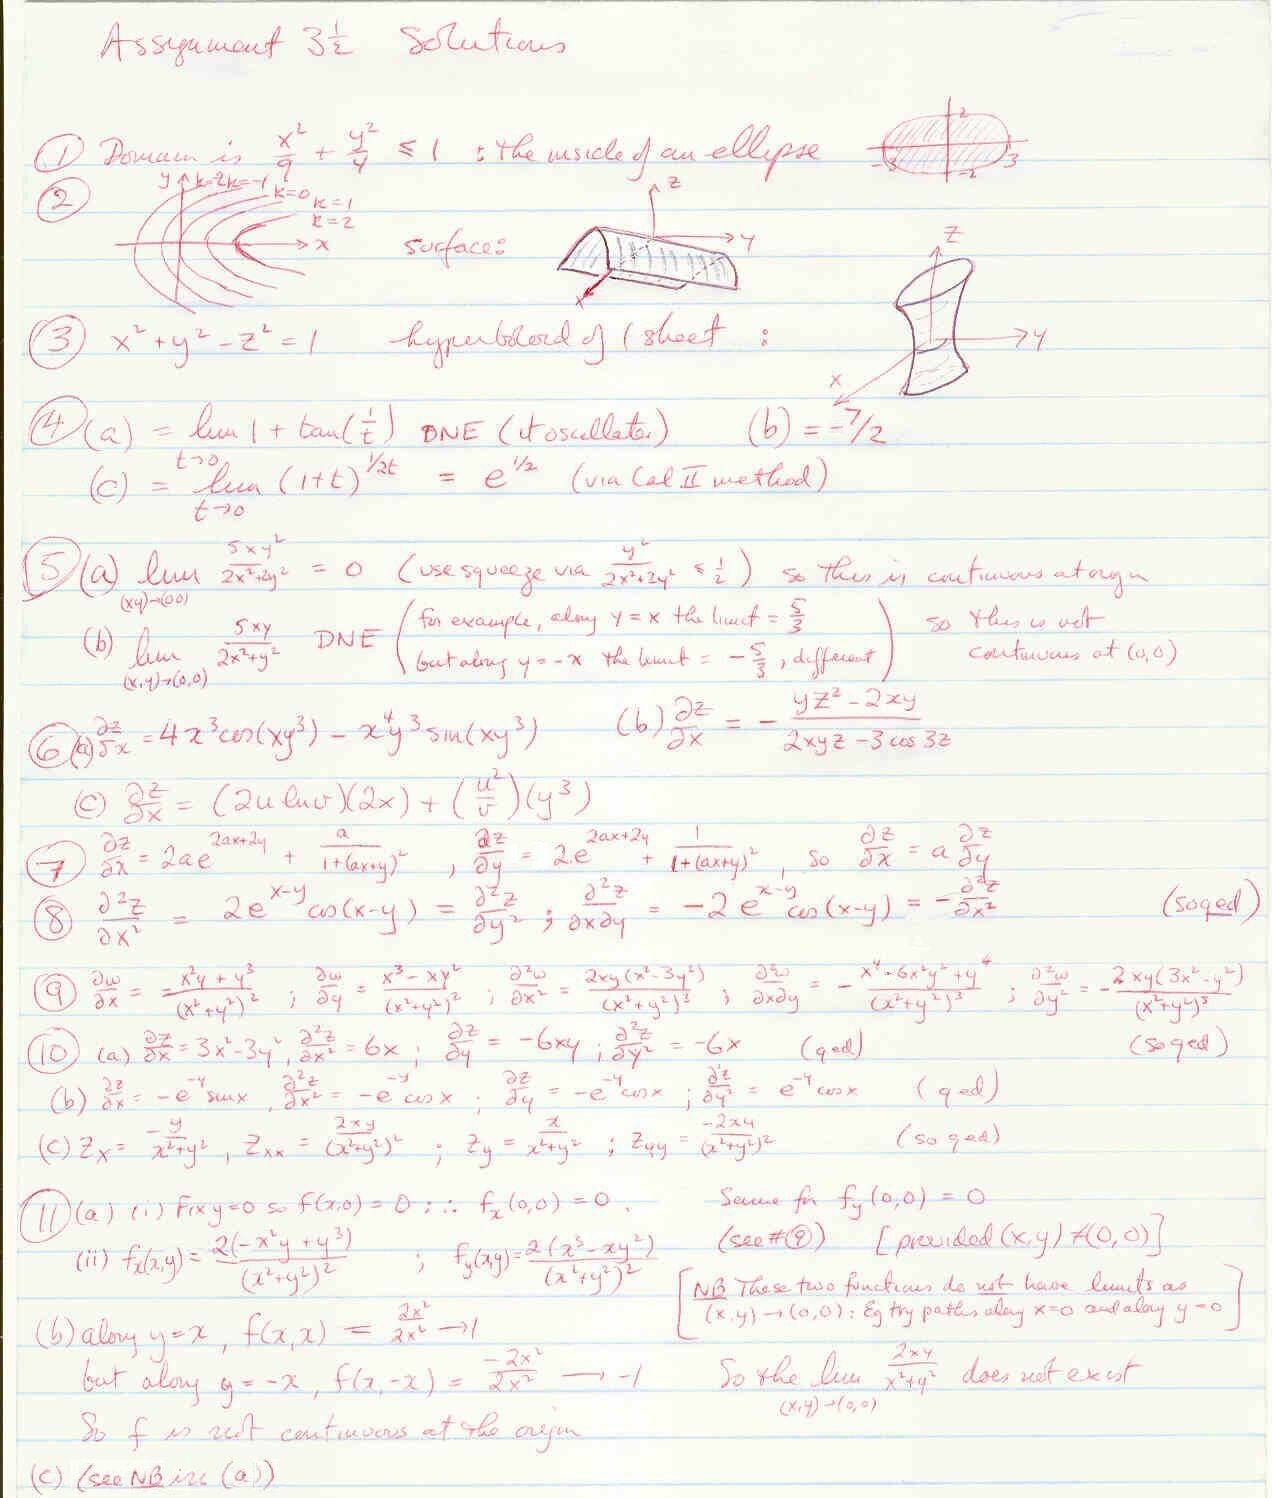 Assignment 3½ Solutions
① Domain is x²/9 + y²/4 ≤ 1 : the inside of an ellipse
2 -3 3 -2
② y k=-2 k=-1 k=0 k=1 k=2 x surface: z y x
③ x² + y² - z² = 1 hyperboloid of 1 sheet : z y x
④ (a) = lim t→0 1 + tan(1/t) DNE (it oscillates) (b) = -7/2
(c) = lim t→0 (1+t)^(1/2t) = e^(1/2) (via Cal II method)
⑤ (a) lim (x,y)→(0,0) 5xy²/(2x²+2y²) = 0 (use squeeze via y²/(2x²+2y²) ≤ 1/2) so this is continuous at origin
(b) lim (x,y)→(0,0) 5xy/(2x²+y²) DNE (for example, along y=x the limit = 5/3 but along y=-x the limit = -5/3, different) so this is not continuous at (0,0)
⑥ (a) ∂z/∂x = 4x³cos(xy³) - x⁴y³sin(xy³) (b) ∂z/∂x = - (yz² - 2xy)/(2xyz - 3cos3z)
(c) ∂z/∂x = (2u ln v)(2x) + (u²/v)(y³)
⑦ ∂z/∂x = 2ae^(2ax+2y) + a/(1+(ax+y)²) , ∂z/∂y = 2e^(2ax+2y) + 1/(1+(ax+y)²) , so ∂z/∂x = a ∂z/∂y
⑧ ∂²z/∂x² = 2e^(x-y) cos(x-y) = ∂²z/∂y² ; ∂²z/∂x∂y = -2e^(x-y) cos(x-y) = -∂²z/∂x² (so qed)
⑨ ∂w/∂x = (-x²y + y³)/(x²+y²)² ; ∂w/∂y = (x³ - xy²)/(x²+y²)² ; ∂²w/∂x² = 2xy(x²-3y²)/(x²+y²)³ ; ∂²w/∂x∂y = - (x⁴-6x²y²+y⁴)/(x²+y²)³ ; ∂²w/∂y² = - 2xy(3x²-y²)/(x²+y²)³
(so qed)
⑩ (a) ∂z/∂x = 3x²-3y², ∂²z/∂x² = 6x ; ∂z/∂y = -6xy ; ∂²z/∂y² = -6x (qed)
(b) ∂z/∂x = -e^(-y) sinx , ∂²z/∂x² = -e^(-y) cosx ; ∂z/∂y = -e^(-y) cosx ; ∂²z/∂y² = e^(-y) cosx (qed)
(c) Zx = -y/(x²+y²) , Zxx = 2xy/(x²+y²)² ; Zy = x/(x²+y²) ; Zyy = -2xy/(x²+y²)² (so qed)
⑪ (a) (i) Fix y=0 so f(x,0) = 0 ∴ fx(0,0) = 0. Same for fy(0,0) = 0
(ii) fx(x,y) = 2(-x²y + y³)/(x²+y²)² ; fy(x,y) = 2(x³ - xy²)/(x²+y²)² (see #⑨) [provided (x,y) ≠ (0,0)]
[NB These two functions do not have limits as
(x,y)→(0,0): Eg try paths along x=0 and along y=0]
(b) along y=x, f(x,x) = 2x²/2x² → 1
but along y=-x, f(x,-x) = -2x²/2x² → -1 So the lim (x,y)→(0,0) 2xy/(x²+y²) does not exist
So f is not continuous at the origin
(c) (see NB in (a))